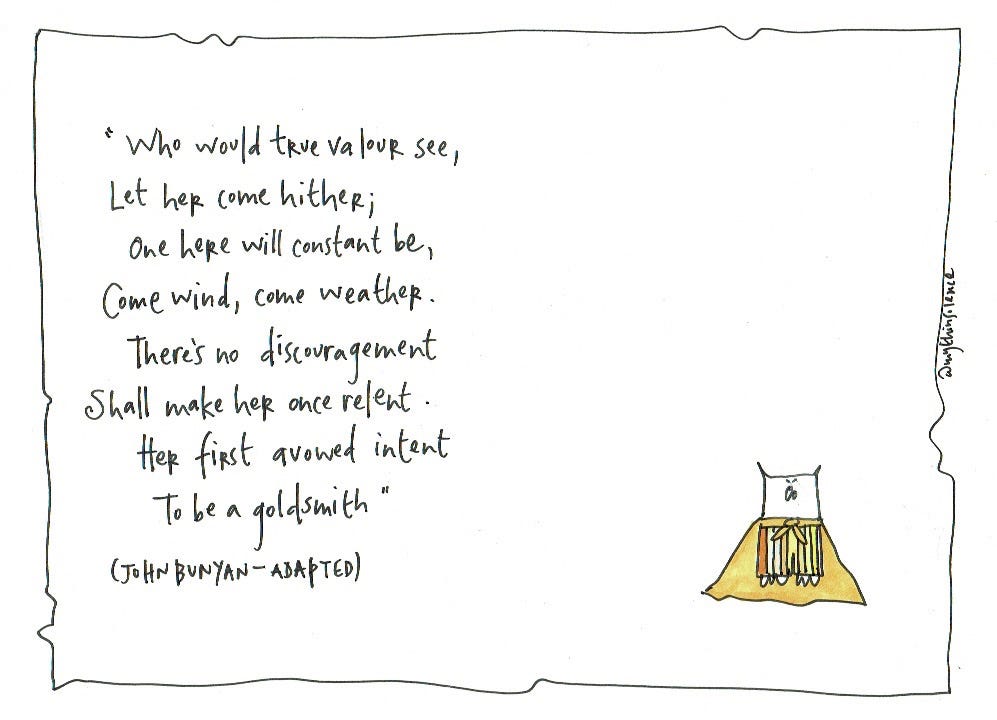 "Who would true valour see,
Let her come hither;
One here will constant be,
Come wind, come weather.
There's no discouragement
Shall make her once relent.
Her first avowed intent
To be a goldsmith"
(JOHN BUNYAN – ADAPTED)
@mythinsilence